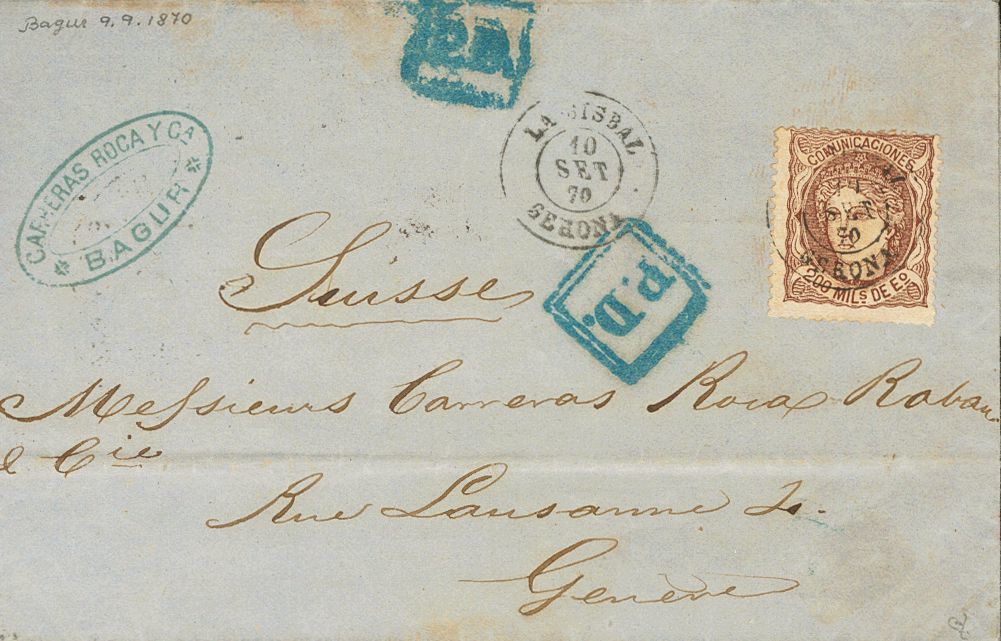 Bagur 9.9.1870
CARRERAS ROCA Y CA
BAGUR
LA BISBAL
10
SET
70
GERONA
COMUNICACIONES
200 MILS DE EO
SET
70
GERONA
P.D.
Suisse
Messieurs Carreras Roca
& Cie
Rue Lausanne
Genève